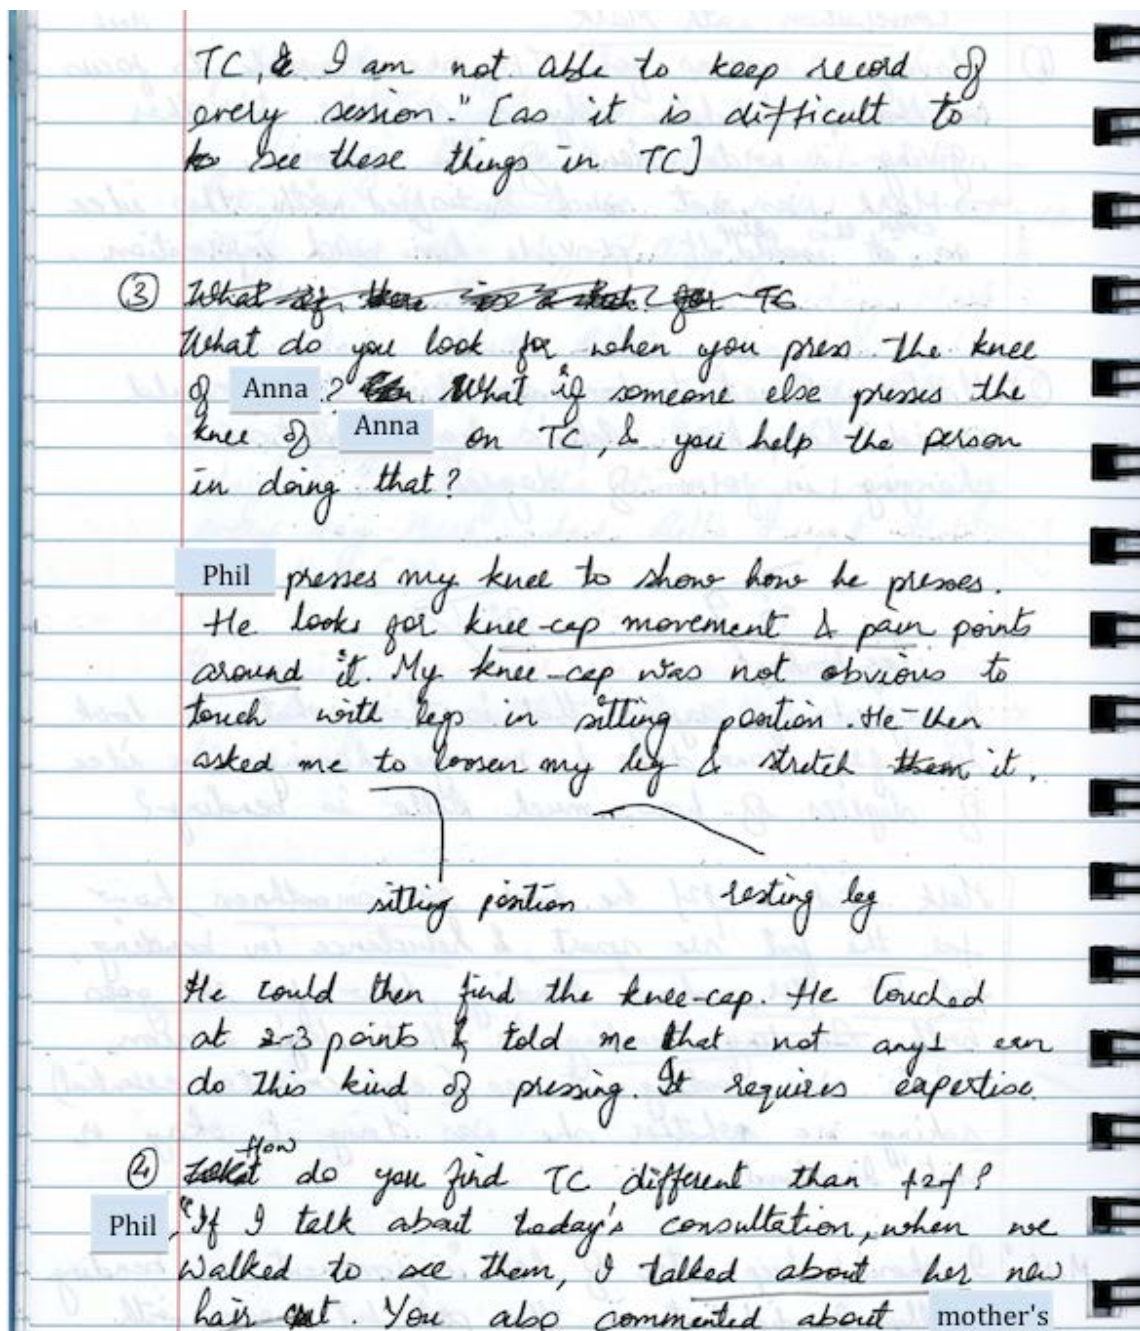 TC, & I am not able to keep record of
every session." [as it is difficult to
to see these things in TC]
③ What if there is a  for TC
What do you look for when you press the knee
of Anna? What if someone else presses the
knee of Anna on TC, & you help the person
in doing that?
Phil presses my knee to show how he presses.
He looks for knee-cap movement & pain points
around it. My knee-cap was not obvious to
touch with legs in sitting position. He then
asked me to loosen my leg & stretch them it.
sitting position resting leg
He could then find the knee-cap. He touched
at 2-3 points & told me that not any1 can
do this kind of pressing. It requires expertise.
④ What How do you find TC different than f2f?
Phil, "If I talk about today's consultation, when we
walked to see them, I talked about her new
hair cut. You also commented about mother's